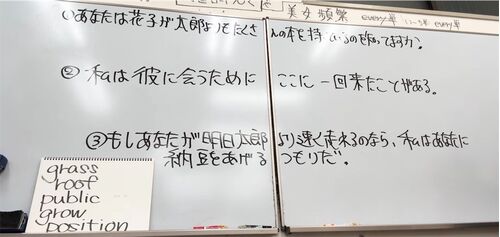 美 頻繁 every
①あなたは花子が太郎よりもたくさんの本を持っているのを知ってますか?
② 私は彼に会うために ここに一回来たことがある。
③もしあなたが明日太郎より速く走れるのなら、私はあなたに
納豆をあげるつもりだ。
grass
roof
public
grow
position